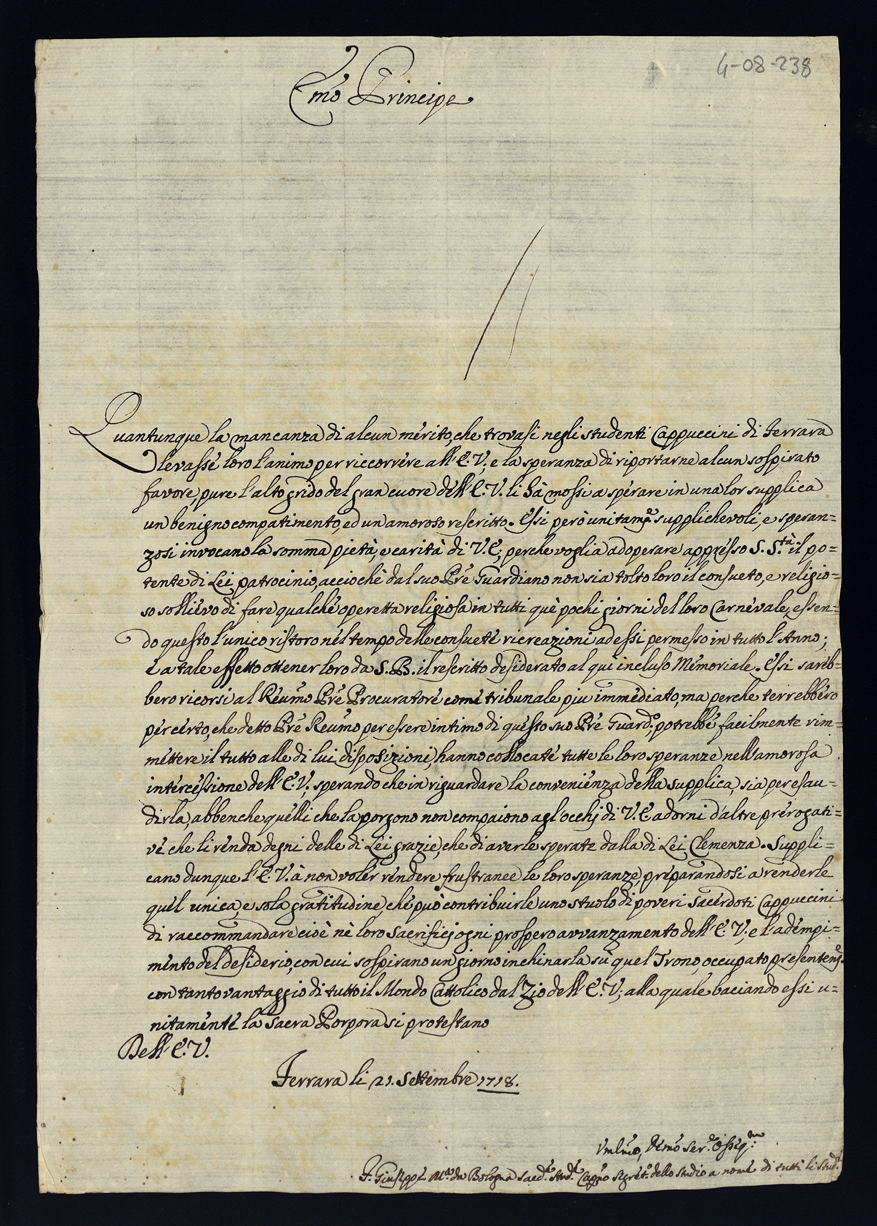 4-08-238
Emo Principe
Quantunque la mancanza di alcun mérito, che trovasi negli studenti Cappuccini di Ferrara
levasse loro l'animo per riccorrére all'E.V., e la speranza di riportarne alcun sospirato
favore, pure l'alto grido del gran cuore dell'E.V. li hà mossi a spérare in una lor supplica
un benigno compatimento, ed un amoroso rescritto. Essi però unitamte supplichevoli, e speran=
zosi invocano la somma pietà, e carità di V.E., perche voglia adoperare appresso S. S.tà il po=
tente di Lei patrocinio, acciochè dal suo Pré Guardiano non sia tolto loro il consueto, e religio=
so solliévo di fare qualché operetta religiosa in tutti qué pochi giorni del loro Carnévale, essen=
do questo l'unico ristoro nél tempo delle consueté ricreazioni ad essi permesso in tutto l'Anno;
é a tale effetto ottener loro da S.B. il rescritto desiderato al qui incluso Mémoriale. Essi sareb=
bero ricorsi al Reumo Pré Procuratoré comé tribunale piu immédiato, ma perche terrebbéro
pér cérto, che detto Pré Reumo per essere intimo di questo suo Pré Guard.o, potrebbé facilmente rim=
méttere il tutto alle di lui disposizioni, hanno collocaté tutte le loro speranze nell'amorosa
intércéssione dell'E.V., sperando che in riguardare la conveniénza della supplica, sia per esau=
dirla, abbenche quélli che la porgono non compaiono agl'occhj di V.E. adorni d'altre prérogati=
vé che li rénda degni delle di Lei grazie, che di averle sperate dalla di Lei Clemenza. Suppli=
cano dunque l'E.V. à non volér réndere frustranee le loro speranze, préparandosi a renderle
quél unica, e sola gratitudine, ché può contribuirle uno stuolo di poveri Sacérdoti Cappuccini
di raccommandare cioè né loro Sacrificj ogni prospero avvanzamento dell'E.V., e l'adémpi=
mênto del désiderio, con cui sospirano un giorno inchinarla sù quel Trono, occupato presentemte
con tanto vantaggio di tutto il Mondo Cattolico dal Zio dell'E.V., alla quale baciando essi u=
nitaménté la Sacra Porpora si protestano
Dell'E.V.
Ferrara li 21. Settembre 1718.
Umilmo, Devmo Ser.e Ossiq.mo
F. Giuseppé M.a da Bologna Saed.e Stud.e Cappno Segret.o dello studio a nomé di tutti li Stud.i